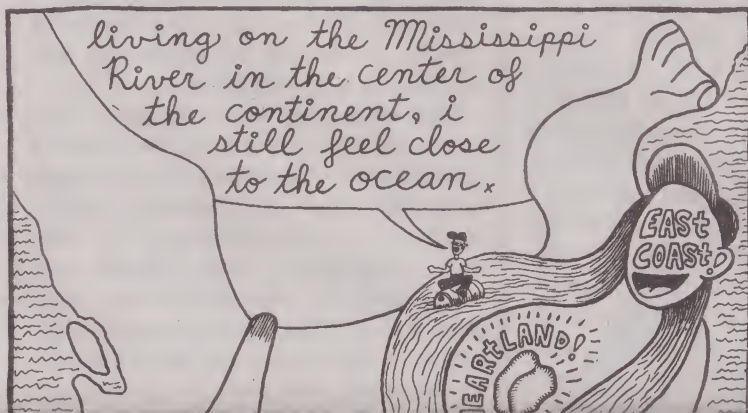 living on the Mississippi
River in the center of
the continent, i
still feel close
to the ocean.
EASt
COASt!
HEARtLAND!